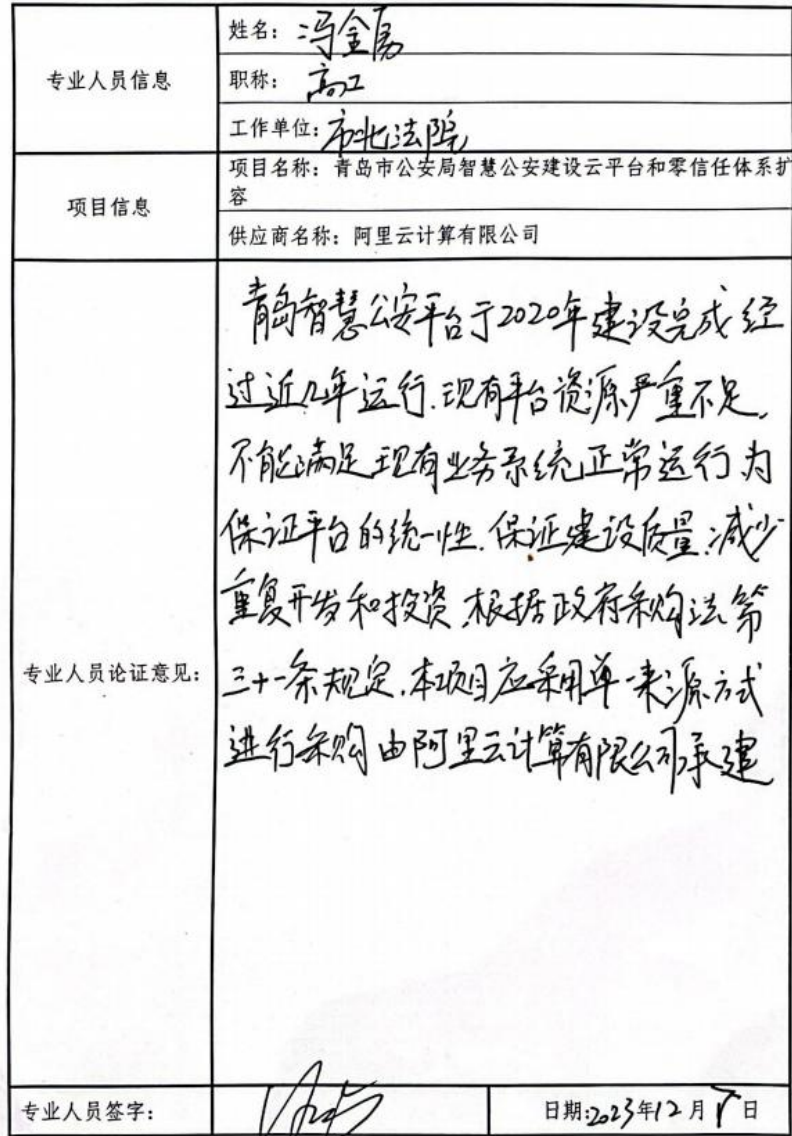 专业人员信息
姓名：冯金勇
职称：高工
工作单位：市北法院
项目信息
项目名称：青岛市公安局智慧公安建设云平台和零信任体系扩
容
供应商名称：阿里云计算有限公司
专业人员论证意见：
青岛智慧公安平台于2020年建设完成经
过近几年运行.现有平台资源严重不足,
不能满足现有业务系统正常运行为
保证平台的统一性.保证建设质量.减少
重复开发和投资.根据政府采购法第
三十一条规定.本项目应采用单一来源方式
进行采购由阿里云计算有限公司承建
专业人员签字：
日期:2023年12月 日